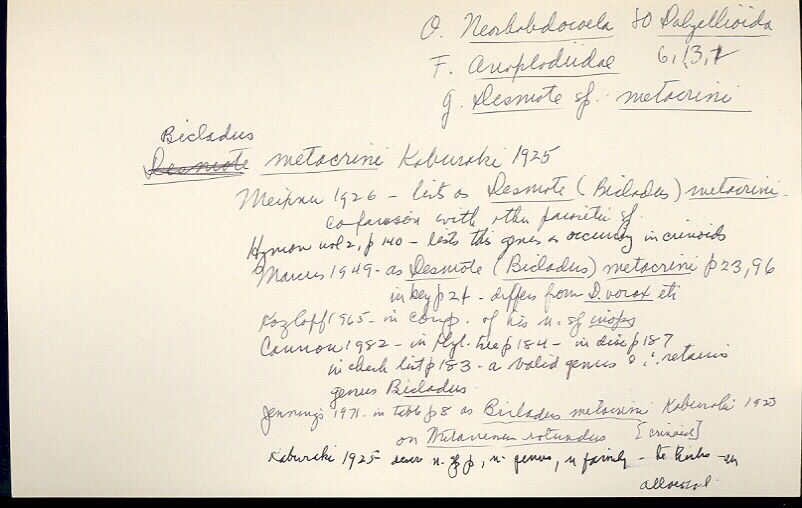 O. Neorhabdocoela SO Dalyellioida
F. Anoplodiidae 6,13,1
G. Desmote sp. metacrini
Bicladus
Desmote metacrini Kaburaki 1925
Meixner 1926 - lists as Desmote (Bicladus) metacrini.
comparison with other parasitic sp.
Hyman vol 2, p 140 - lists this genus as occurring in crinoids
Marcus 1949 - as Desmote (Bicladus) metacrini p 23, 96
in key p 21 - differs from D. vorax etc
Kozloff 1965 - in comp. of his n. sp inops
Cannon 1982 - in Phyl. tree p 184 - in disc p 187
in check list p 183 - a valid genus ∴ retains
genus Bicladus
Jennings 1971 - in table p 8 as Bicladus metacrini Kaburaki 1925
on Metacrinus rotundus [crinoid]
Kaburaki 1925 descr n. sp, n. genus, n family - he thinks an
allocoel